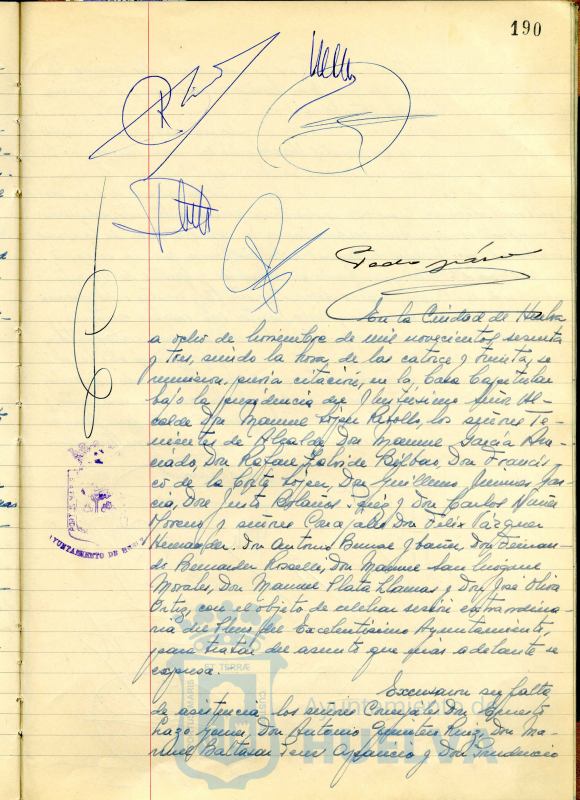 190
Pedro
En la Ciudad de Huelva
a ocho de noviembre de mil novecientos sesenta
y tres, siendo la hora de las catorce y treinta, se
reunieron, previa citación, en la Casa Capitular
bajo la presidencia del Ilustrísimo Señor Al-
calde Don Manuel López Rebollo, los señores Te-
nientes de Alcalde Don Manuel García
Don Rafael de Bilbao, Don Francis-
co de la Corte López, Don Guillermo Jiménez Gar-
cía, Don Justo Bolaños y Don Carlos
Moreno y señores Concejales Don Félix Vázquez
Hernández, Don Antonio Ibáñez, Don Fernan-
do Bermúdez Roselló, Don Manuel
Morales, Don Manuel Plata Llamas y Don José Oliva
Ortiz, con el objeto de celebrar sesión extraordina-
ria del Pleno del Excelentísimo Ayuntamiento,
para tratar del asunto que más adelante se
expresa.
Excusaron su falta
de asistencia los señores Concejales Don Ernesto
Lazo Don Antonio Ruiz, Don Ma-
nuel Baltasar Aparicio y Don Prudencio
AYUNTAMIENTO DE
ET TERRAE
Ayuntamiento de
HUELVA